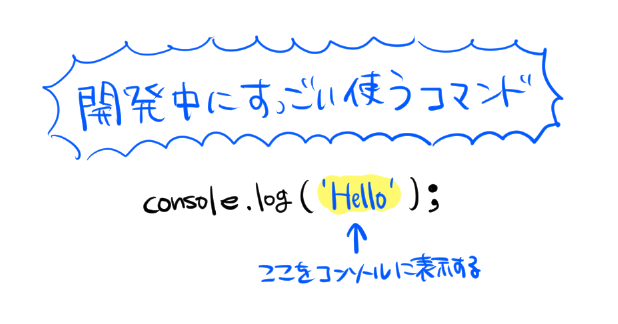 開発中にすっごい使うコマンド
console.log('Hello');
ここをコンソールに表示する